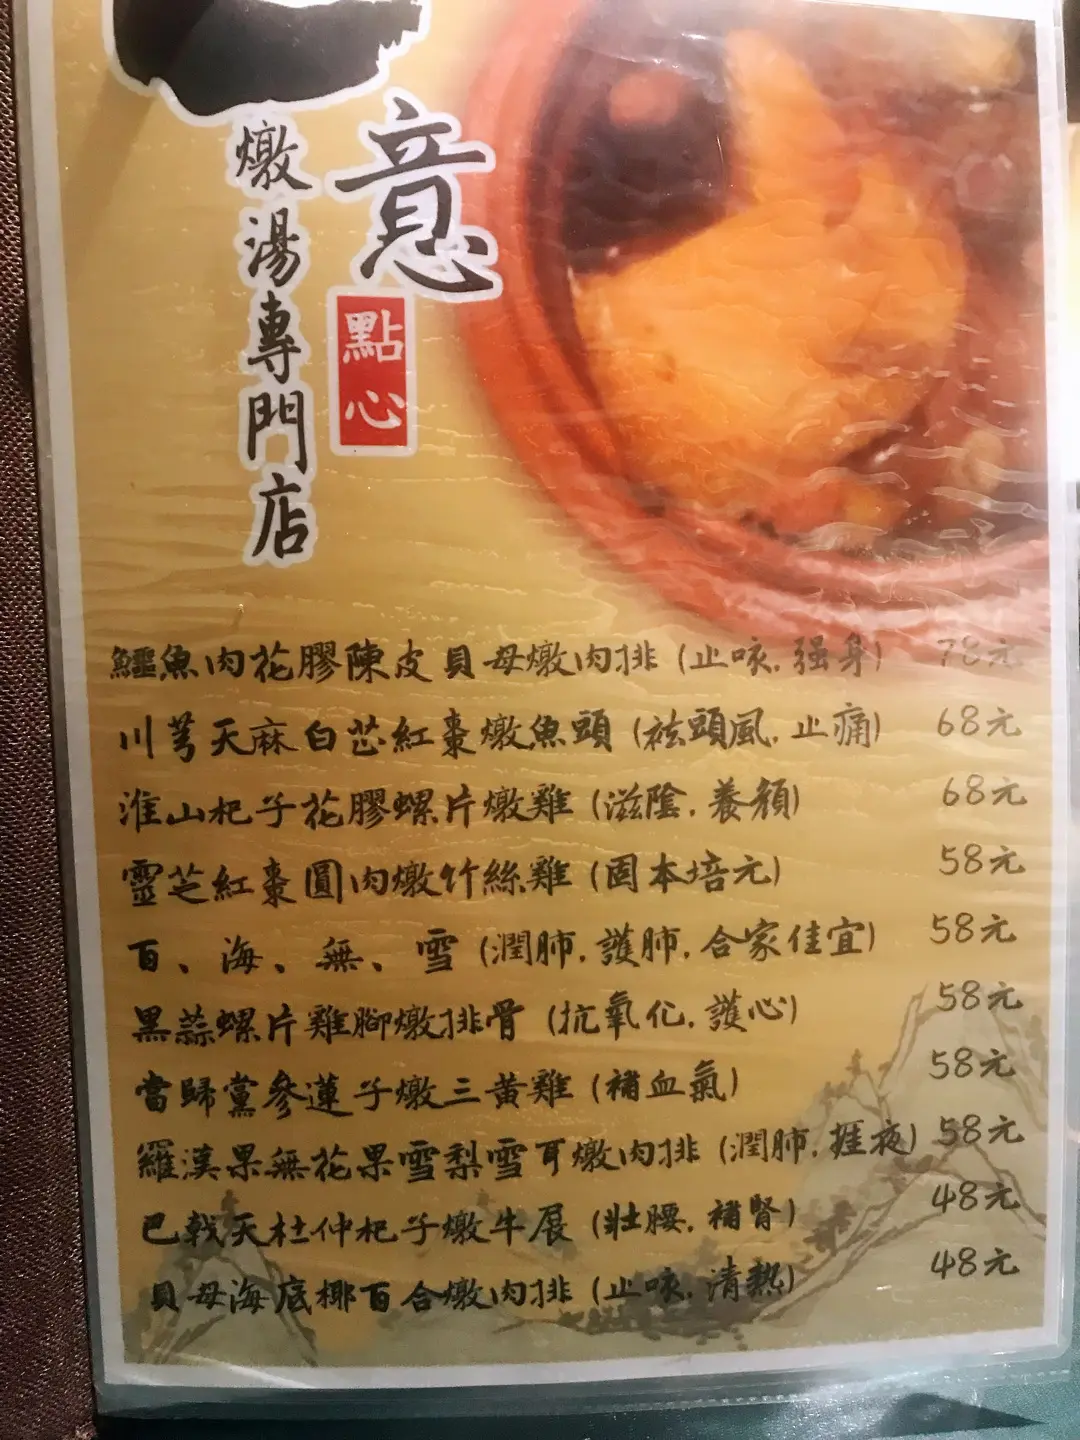 意
點心
燉湯專門店
鱷魚肉花膠陳皮貝母燉肉排 (止咳.强身) 78元
川芎天麻白芷紅棗燉魚頭 (祛頭風.止痛) 68元
淮山杞子花膠螺片燉雞 (滋陰.養顏) 68元
靈芝紅棗圓肉燉竹絲雞 (固本培元) 58元
百、海、無、雪 (潤肺.護肺.合家佳宜) 58元
黑蒜螺片雞腳燉排骨 (抗氧化.護心) 58元
當歸黨參蓮子燉三黃雞 (補血氣) 58元
羅漢果無花果雪梨雪耳燉肉排 (潤肺.捱夜) 58元
巴戟天杜仲杞子燉牛展 (壯腰.補腎) 48元
貝母海底椰百合燉肉排 (止咳.清熱) 48元